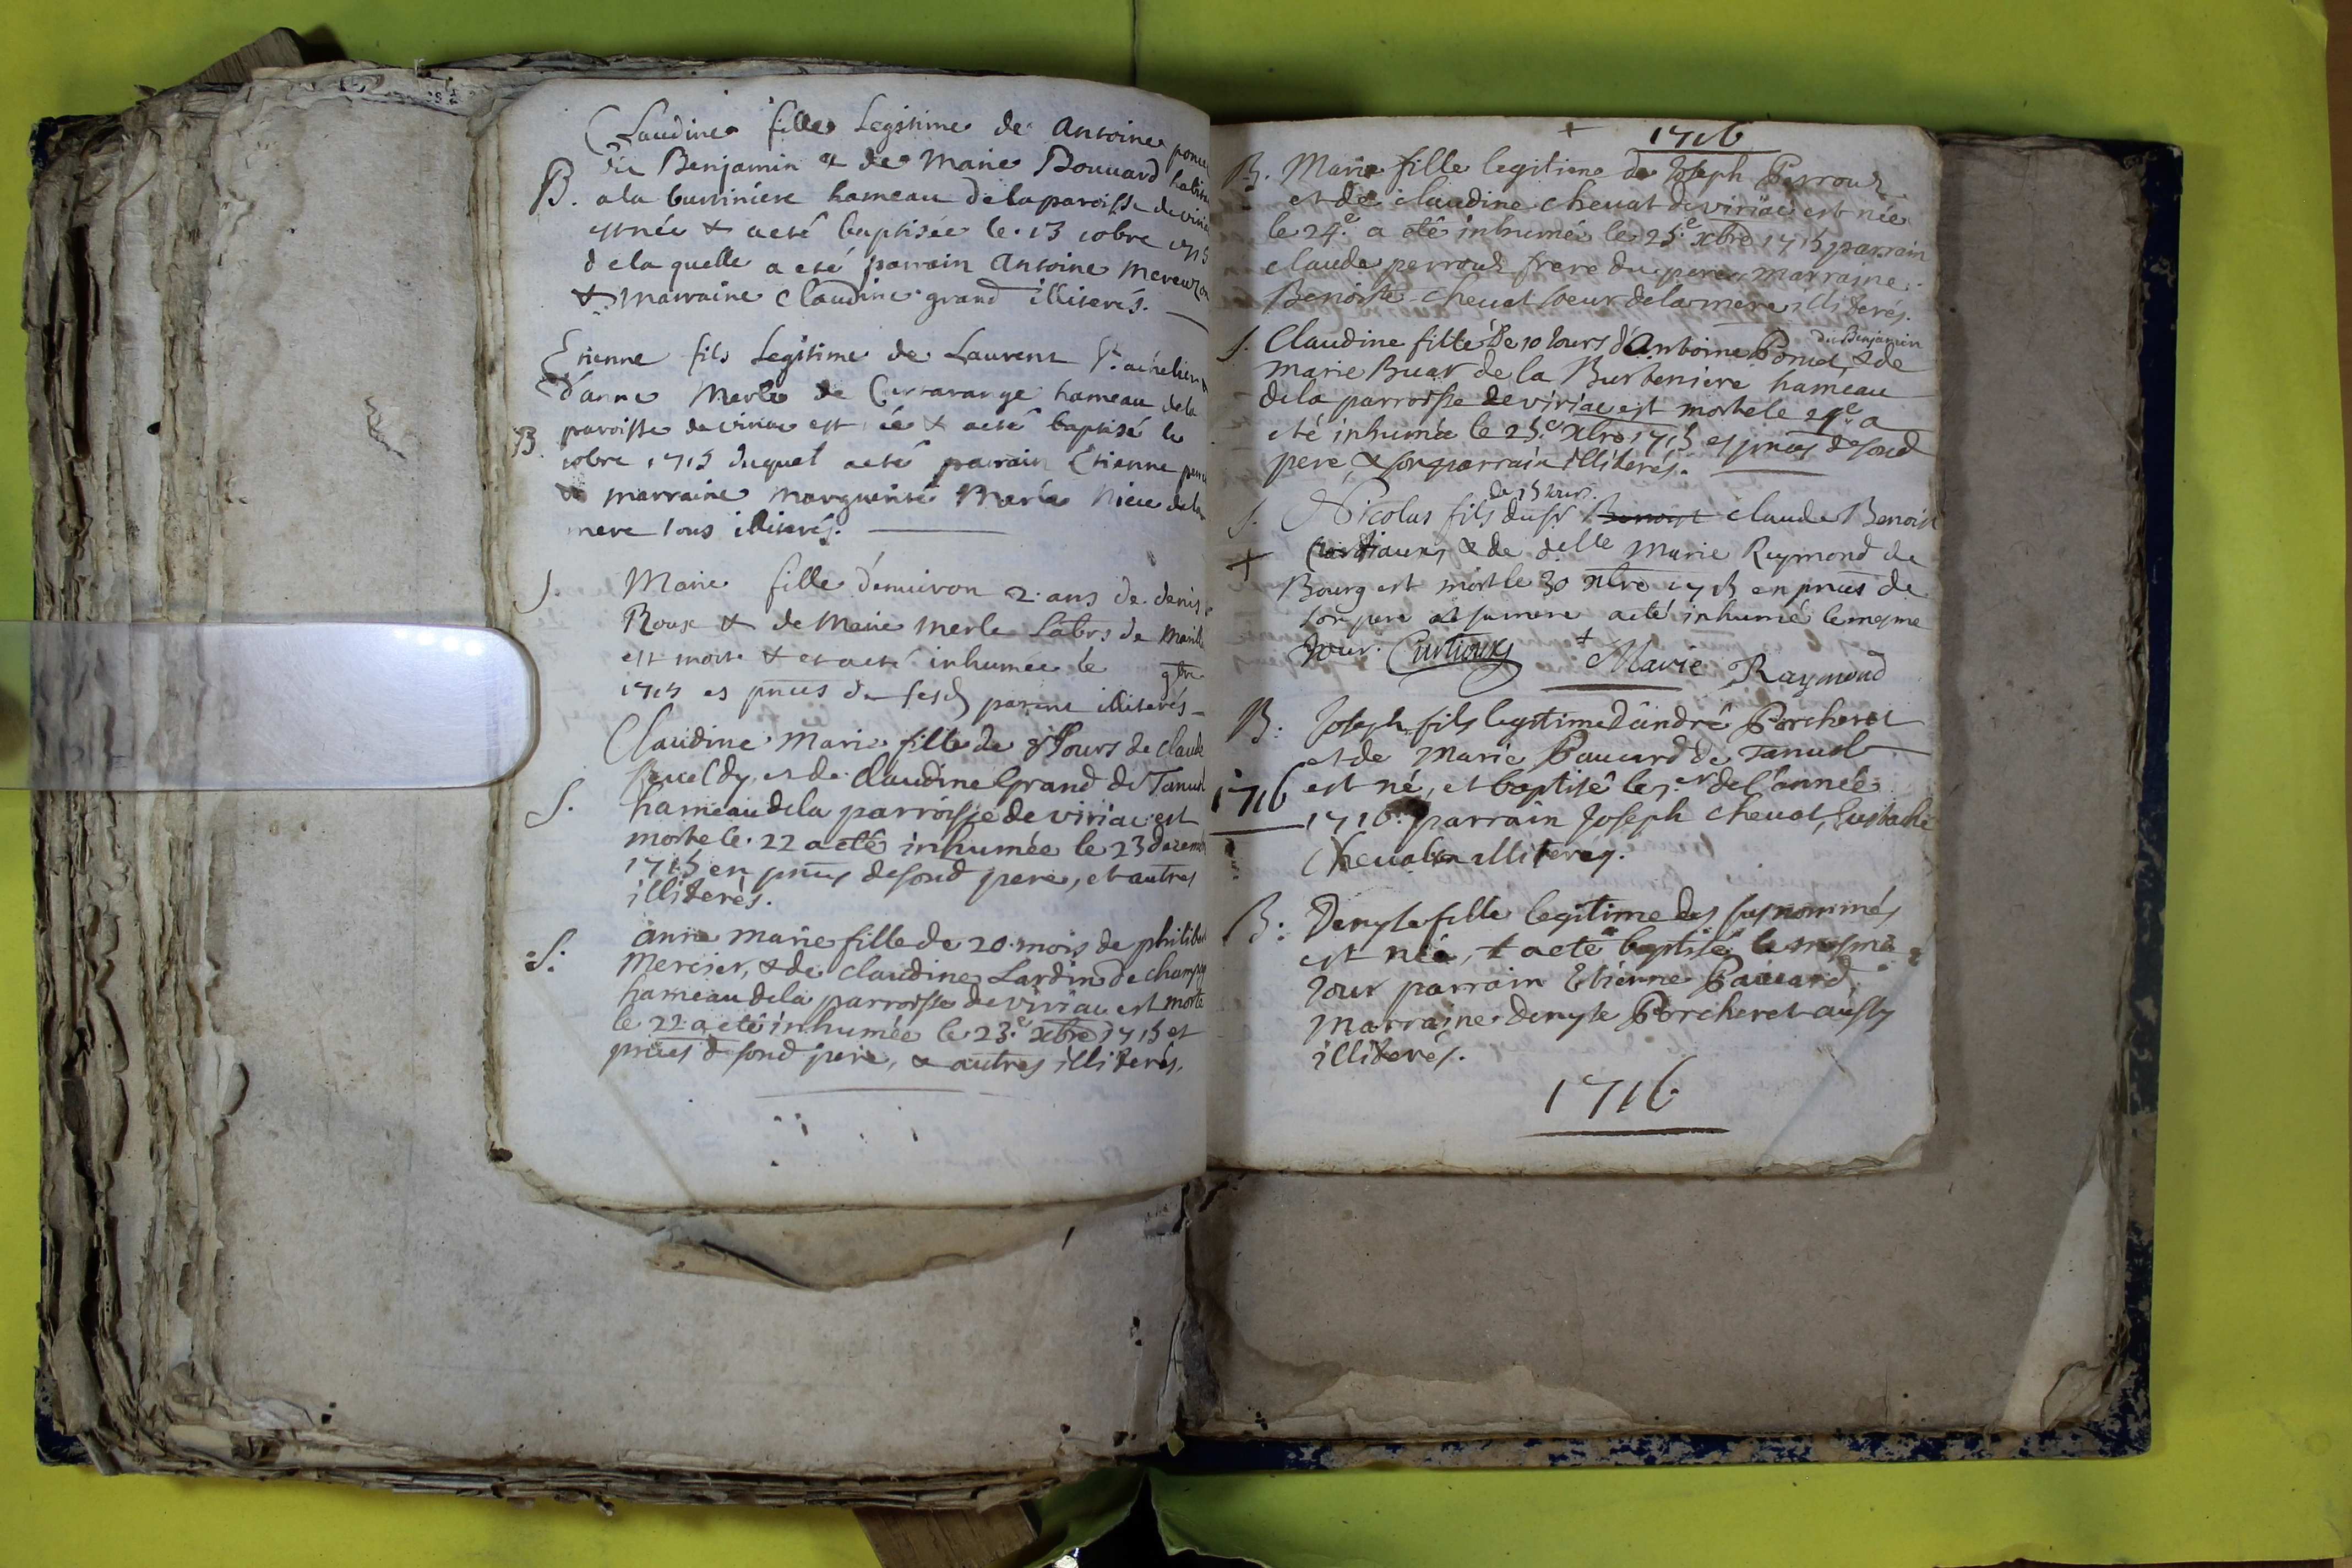 Claudine fille Legitime de Antoine
dit Benjamin & de Marie Bouuard
B. a la burtiniere hameau de la paroisse de
est née & a eté baptisée le 13 xobre 1715
de la quelle a eté parrain Antoine
& marraine Claudine grand illiterés.
Etienne fils Legitime de Laurent
d'anne Merle de hameau de la
B. paroisse de viriac est né & a eté baptisé le
xobre 1715 duquel a eté parrain Etienne
& marraine Marguerite Marie niece de la
mere tous illiterés.
S. Marie fille d'enuiron 2 ans de denis
Roux & de Marie Merle de
est morte & et a eté inhumée le 9bre
1715 es pnces de parent illiterés
Claudine Marie fille de 8 Jours de claude
et de Claudine Grand de Tanuol
S. hameau de la parroisse de viriac est
morte le 22 a eté inhumée le 23 decemb
1715 en pnces de sond pere, et autres
illiterés.
anne marie fille de 20 mois de philiber
S: Mercier, & de claudine Lardin de
hameau de la parroisse de viriac est morte
le 22 a eté inhumée le 23.e xbre 1715 et
pnces de sond pere, & autres illiterés.
+ 1716
B. Marie fille legitime de Joseph Perroud
et de claudine cheuat de viriac est née
le 24.e a eté inhumée le 25.e xbre 1715 parrain
claude perroud frere du pere, marraine
Benoiste cheuat soeur de la mere illiterés.
dit Benjamin
S. Claudine fille de 10 Jours d'Antoine Poncet & de
marie Buar de la Burteniere hameau
de la parroisse de viriac est morte le 24.e a
eté inhumée le 25.e xbre 1715 es pnces de sond
pere & son parrain illiterés.
de 15 Jours
S. Nicolas fils du Sr Benoist claude Benoist
+ & de delle Marie Reymond de
Bourg est mort le 30 xbre 1715 en pnces de
son pere & sa mere a eté inhumé le mesme
Jour. + Marie Raymond
B: Joseph fils legitime d'andré Porcheret
et de Marie Pauuard de Tanuol
1716 est né, et baptisé le 1.er de l'année
1716. parrain Joseph cheuat, Eustache
Cheualon illiterés.
B: Denyse fille legitime des susnommés
est née, & a eté baptisée le mesme
Jour parrain Etienne Pauuard,
Marraine denyse Porcheret aussy
illiterés.
1716